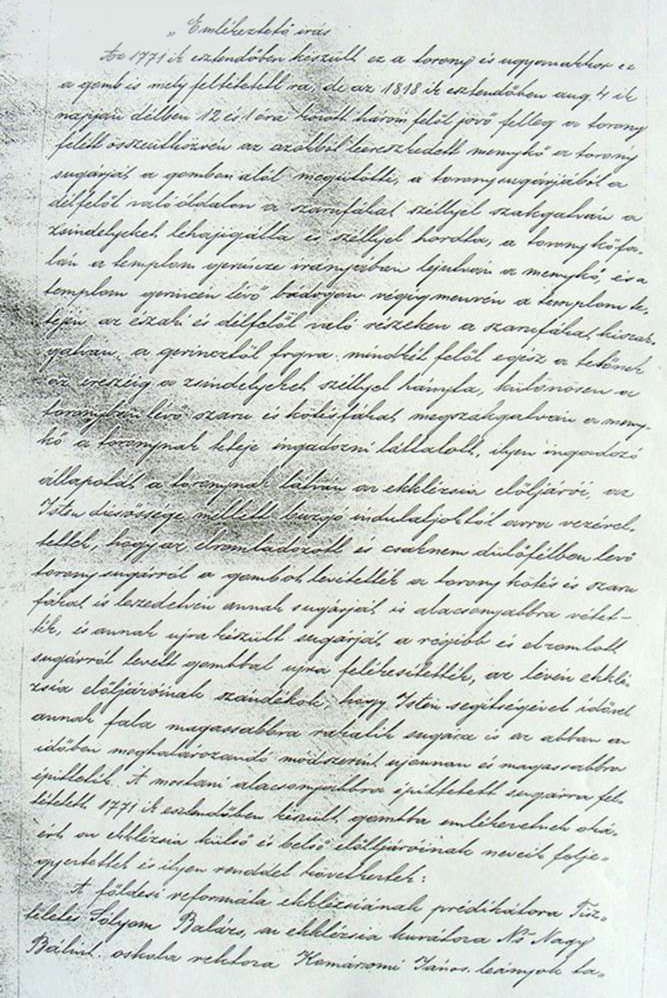 „Emlékeztető irás
Az 1771 ik esztendőben készült ez a torony és ugyanakkor ez
a gomb is mely feltétetett rá, de az 1818 ik esztendőben aug. 4 ik
napján délben 12 és 1 óra között három felől jövő felleg a torony
felett összeütközvén az azokból leereszkedett menykő a torony
sugárját a gombon alól megütötte, a torony sugárjából a
délfelől való oldalon a szarufákat széllyel szakgatván a
zsindelyeket lehajigálta és széllyel hordta, a torony kőfa-
lán a templom gerincze irányában lejutván a menykő, és a
templom gerincén lévő bádogon végigmenvén a templom te-
tején az északi és délfelől való részeken a szarufákat kiszag-
gatván, a gerincztől fogva mindkét felől egész a tetőnek
az ereszéig a zsindelyeket széllyel hányta, különösen a
toronyban lévő szaru és kötésfákat megszakgatván a meny-
kő a toronynak teteje ingadozni láttatott, ilyen ingadozó
állapotát a toronynak látván az ekklézsia előljárói, az
Isten dicsőssége mellett buzgó indulatjoktól arra vezérel-
tettek, hogy az elromladozott és csaknem dülőfélben levő
torony sugárról a gombot levétették a torony kötés és szaru
fákat is leszedetvén annak sugárját is alacsonyabbra vétet-
ték, és annak ujra készült sugárját, a régibb és elromlott
sugárról levett gombbal ujra felékesítették, az lévén ekklé-
zsia előljáróinak szándékok, hogy Isten segítségével idővel
annak fala magasabbra rakatik sugára is az abban az
időben meghatározandó módszerint ujonnan és magasabbra
építtetik. A mostani alacsonyabbra építtetett sugárra fel-
tétetett 1771 ik esztendőben készült gombba emlékezetnek oká-
ért az ekklézsia külső és belső előlljáróinak neveik felje-
gyeztettek és ilyen renddel következtek:
A földesi reformáta ekklézsiának prédikátora Tisz-
teletes Sólyom Balázs, az ekklézsia kurátora Ns Nagy
Bálint. oskola rektora Komáromi János. leányok ta-